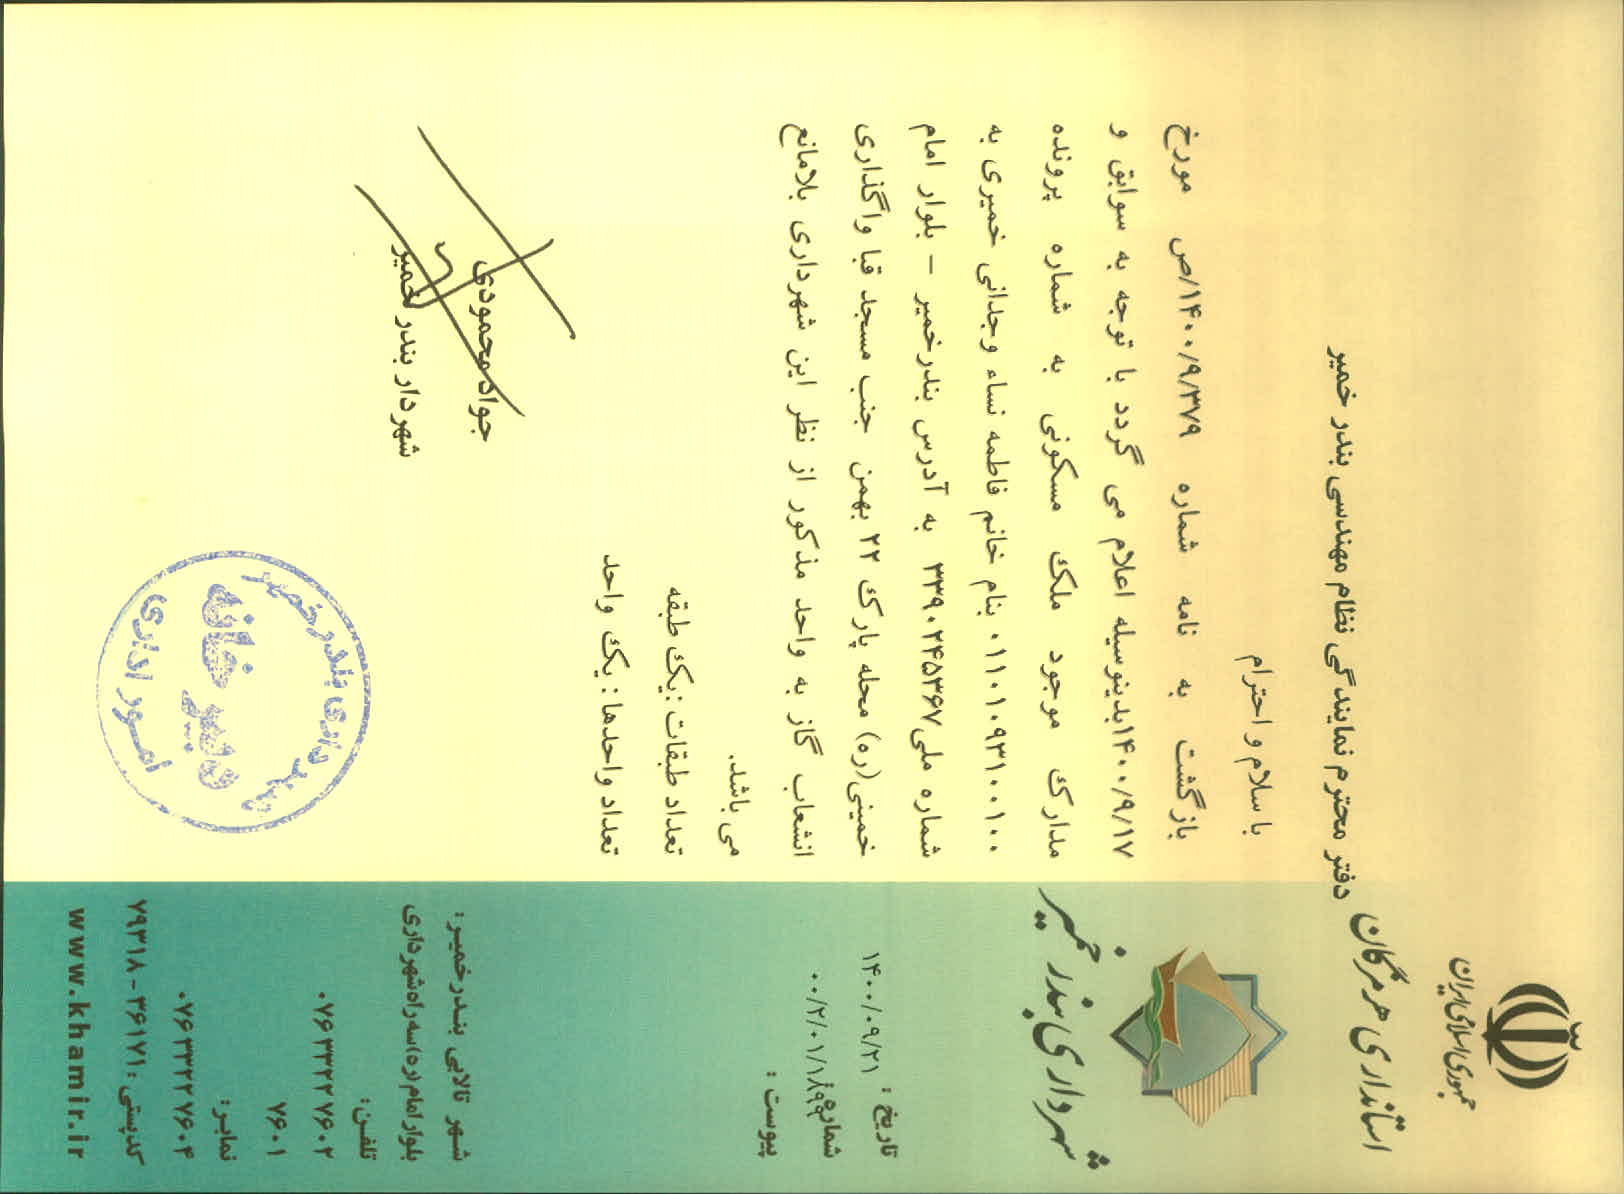 جمهوری اسلامی ایران
استانداری هرمزگان
شهرداری بندر خمیر
تاریخ : ۱۴۰۰/۰۹/۲۱
شماره:
پیوست :
دفتر محترم نمایندگی نظام مهندسی بندر خمیر
با سلام و احترام
بازگشت به نامه شماره ۱۴۰۰/۹/۳۷۹/ص مورخ
۱۴۰۰/۹/۱۷بدینوسیله اعلام می گردد با توجه به سوابق و
مدارک موجود ملک مسکونی به شماره پرونده
۰۱۱۰۱۰۹۳۱۰۰۱۰۰ بنام خانم فاطمه نساء وجدانی خمیری به
شماره ملی۳۳۹۰۲۴۵۳۶۷ به آدرس بندرخمیر – بلوار امام
خمینی(ره) محله پارک ۲۲ بهمن جنب مسجد قبا واگذاری
انشعاب گاز به واحد مذکور از نظر این شهرداری بلامانع
می باشد.
تعداد طبقات :یک طبقه
تعداد واحدها: یک واحد
جواد محمودی
شهردار بندر خمیر
شهرداری بندر خمیر
دبیرخانه
امور اداری
شهر تالابی بندرخمیر:
بلوار امام(ره)سه راه شهرداری
تلفن:
۰۷۶۳۳۲۲۷۶۰۲
۷۶۰۱
نمابر:
۰۷۶۳۳۲۲۷۶۰۴
کدپستی: ۳۶۱۷۱-۷۹۳۱۸
www.khamir.ir